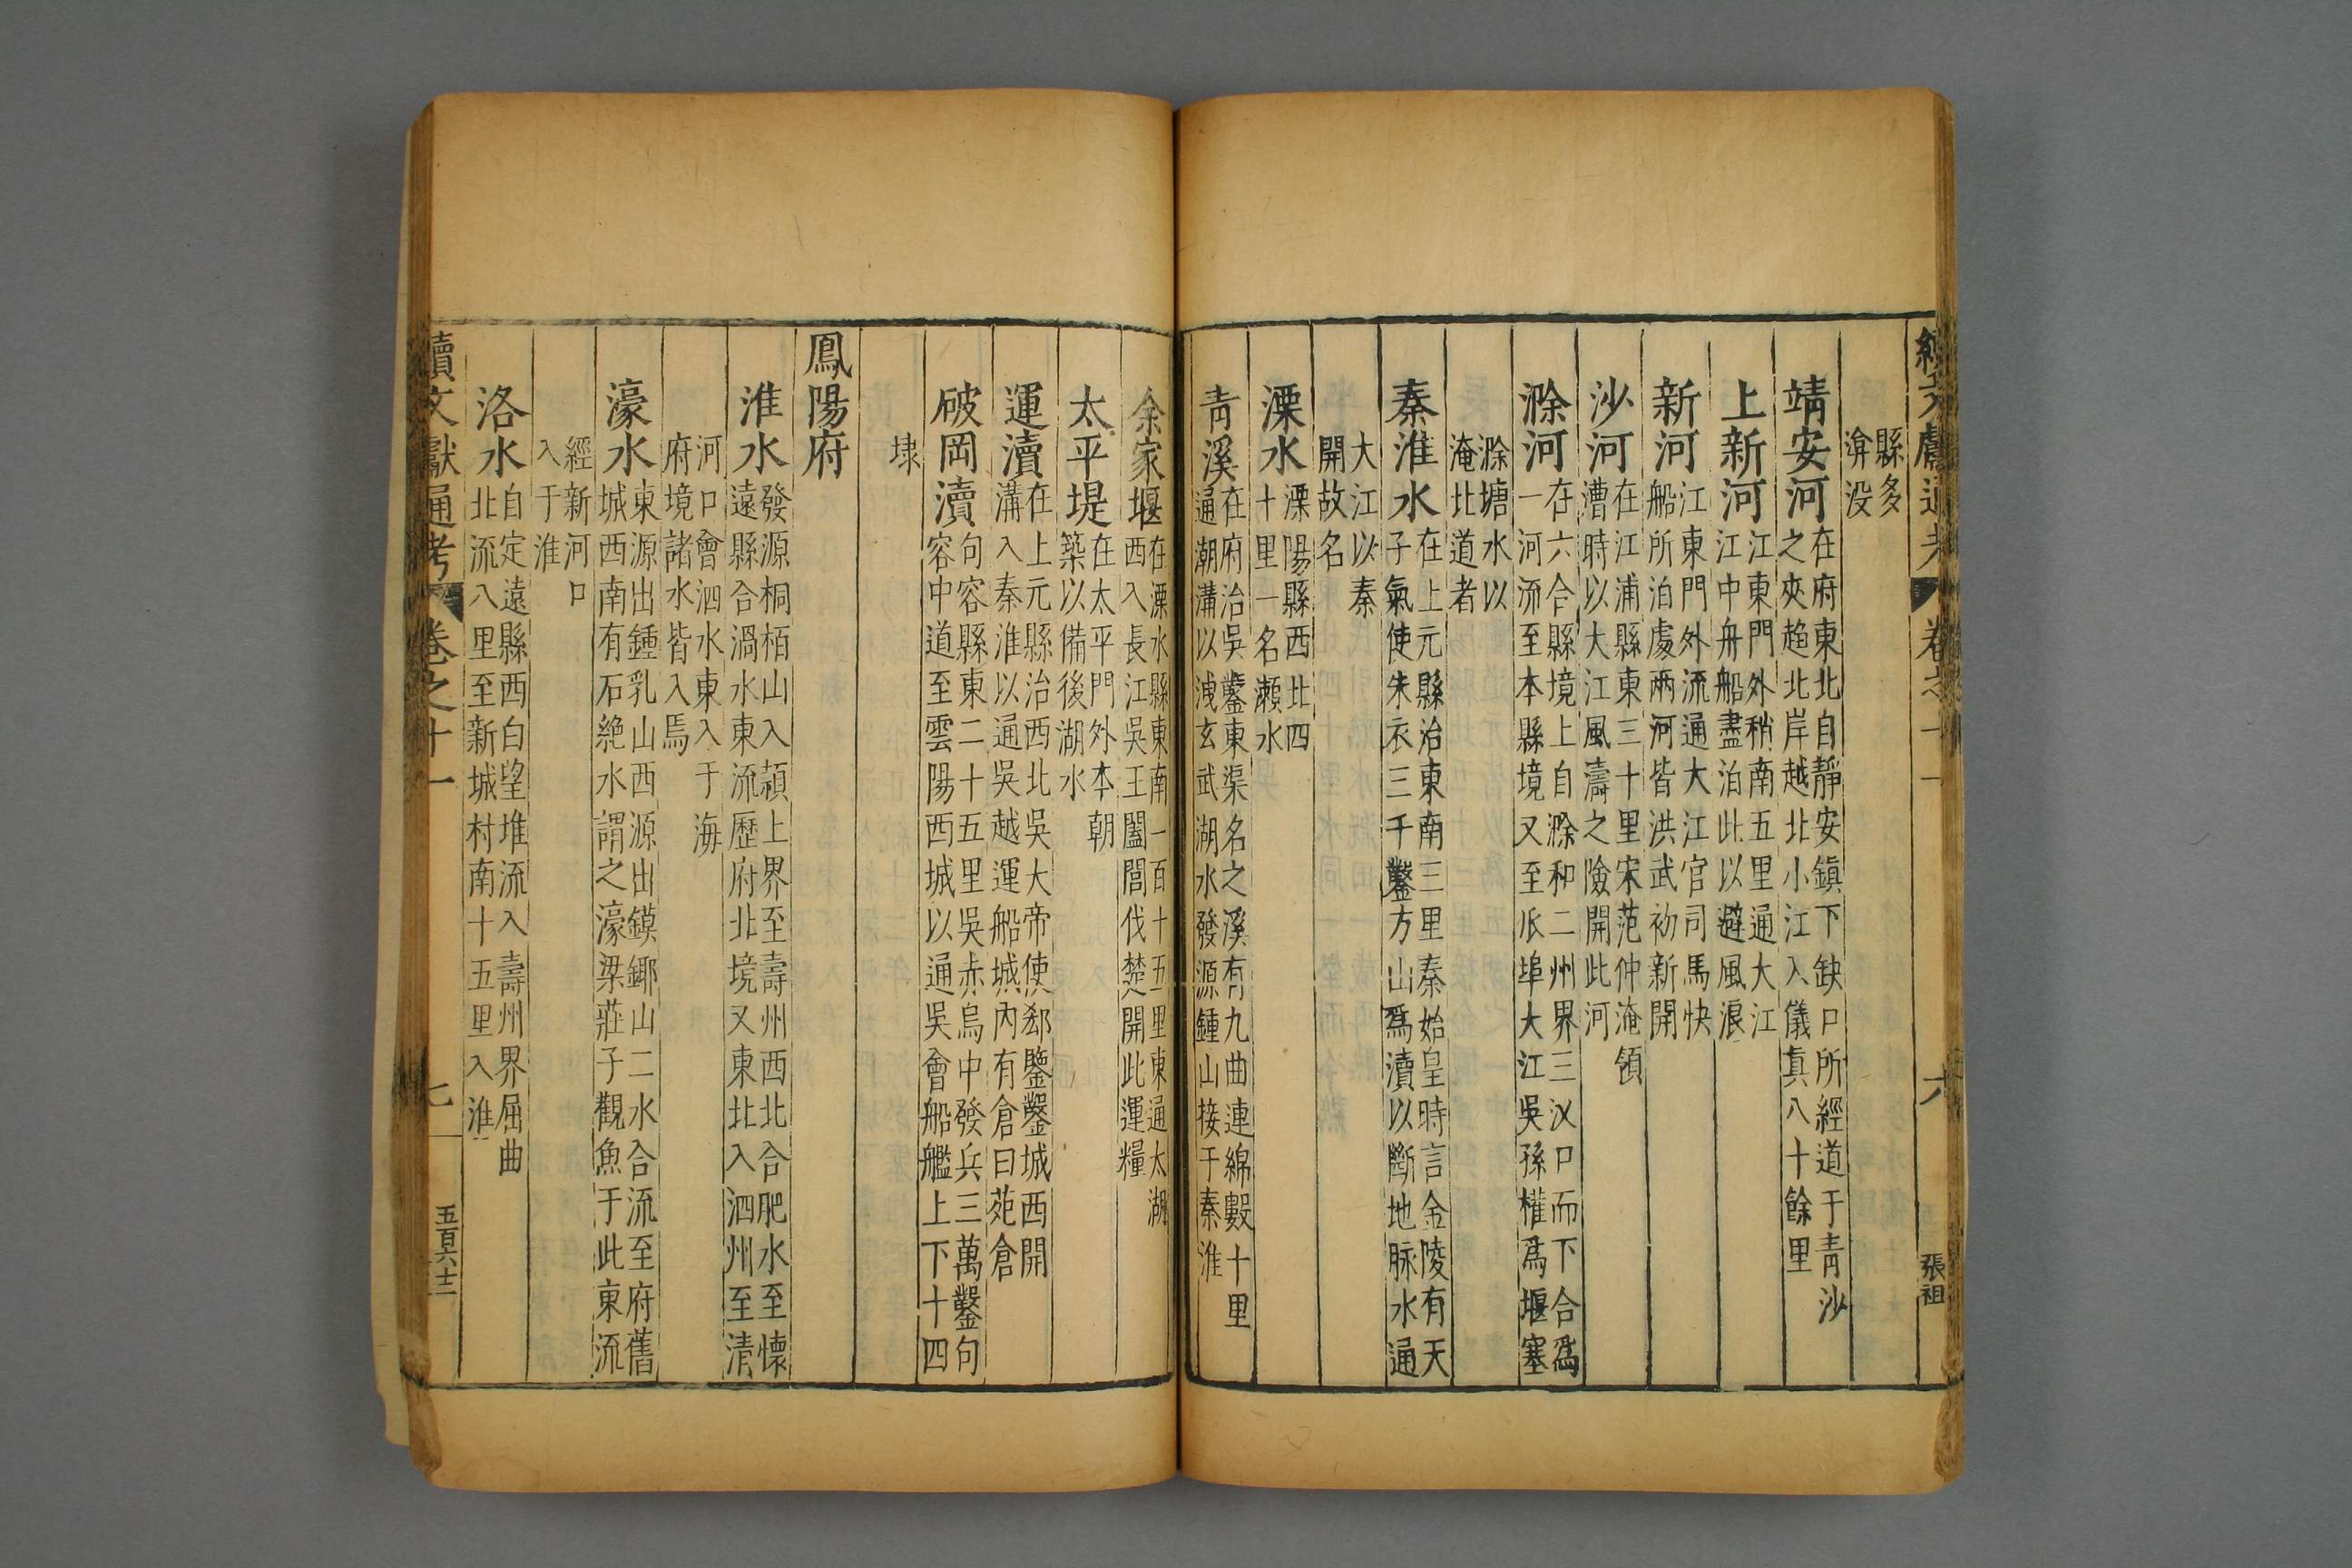 續文獻通考 卷之十一 六 張祖
縣多
渰没
靖安河在府東北自靜安鎮下缺口所經道于青沙
之夾趨北岸越北小江入儀真八十餘里
上新河江東門外稍南五里通大江
江中舟船盡泊此以避風浪
新河江東門外流通大江官司馬快
船所泊處兩河皆洪武初新開
沙河在江浦縣東三十里宋范仲淹領
漕時以大江風濤之險開此河
滁河在六合縣境上自滁和二州界三汊口而下合爲
一河流至本縣境又至瓜埠大江吳孫權爲堰塞
滁塘水以
淹北道者
秦淮水在上元縣治東南三里秦始皇時言金陵有天
子氣使朱衣三千鑿方山爲瀆以斷地脉水通
大江以秦
開故名
溧水溧陽縣西北四
十里一名瀨水
青溪在府治吳鑿東渠名之溪有九曲連綿數十里
通潮溝以洩玄武湖水發源鍾山接于秦淮
余家堰在溧水縣東南一百十五里東通太湖
西入長江吳王闔閭伐楚開此運糧
太平堤在太平門外本朝
築以備後湖水
運瀆在上元縣治西北吳大帝使郄鑒鑿城西開
溝入秦淮以通吳越運船城內有倉曰苑倉
破岡瀆句容縣東二十五里吳赤烏中發兵三萬鑿句
容中道至雲陽西城以通吳會船艦上下十四
埭
鳳陽府
淮水發源桐栢山入潁上界至壽州西北合肥水至懷
遠縣合渦水東流歷府北境又東北入泗州至清
河口會泗水東入于海
府境諸水皆入焉
濠水東源出鍾乳山西源出鏌鎁山二水合流至府舊
城西南有石絶水謂之濠梁莊子觀魚于此東流
經新河口
入于淮
洛水自定遠縣西白望堆流入壽州界屈曲
北流八里至新城村南十五里入淮
續文獻通考 卷之十一 七 五百六十二